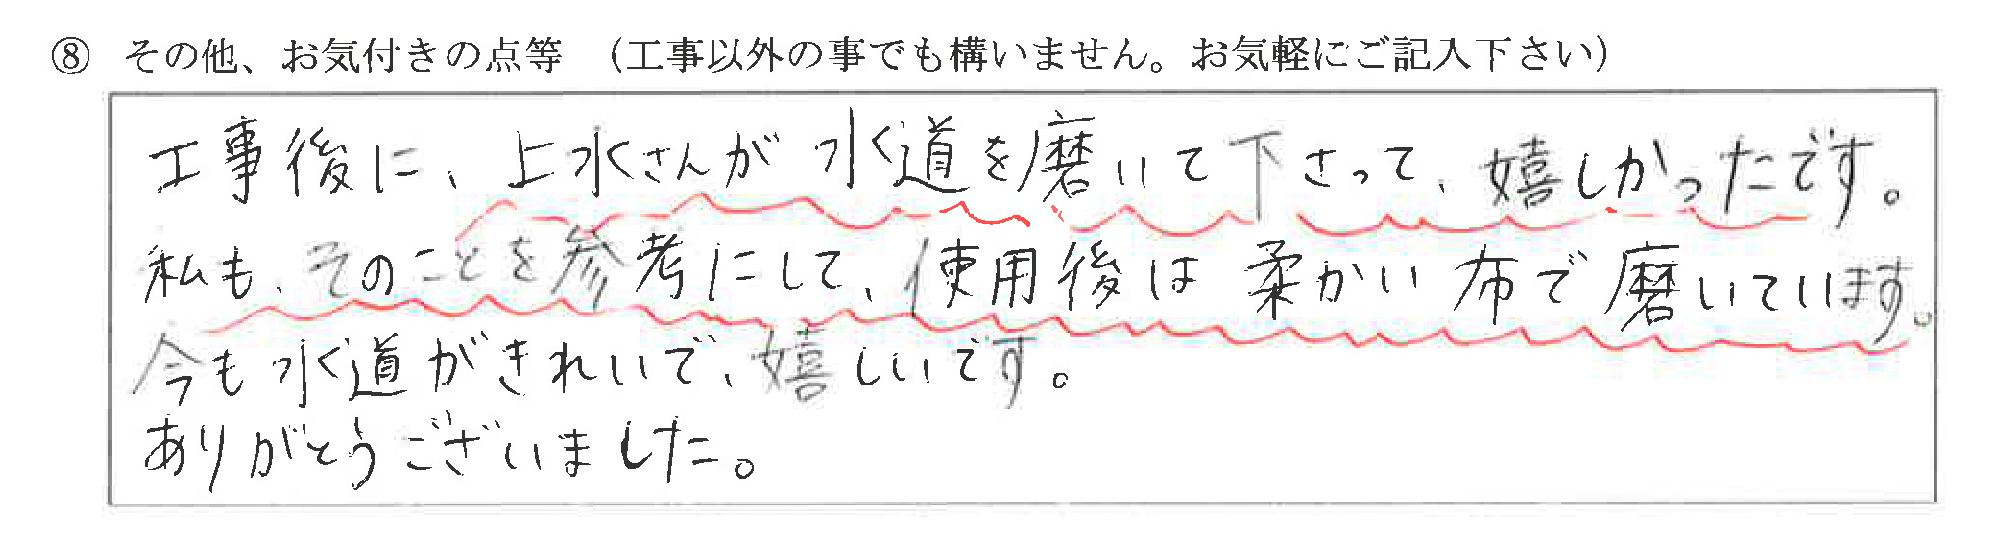 ⑧ その他、お気付きの点等 （工事以外の事でも構いません。お気軽にご記入下さい）
工事後に、上水さんが水道を磨いて下さって、嬉しかったです。
私も、そのことを参考にして、使用後は柔かい布で磨いています。
今も水道がきれいで、嬉しいです。
ありがとうございました。